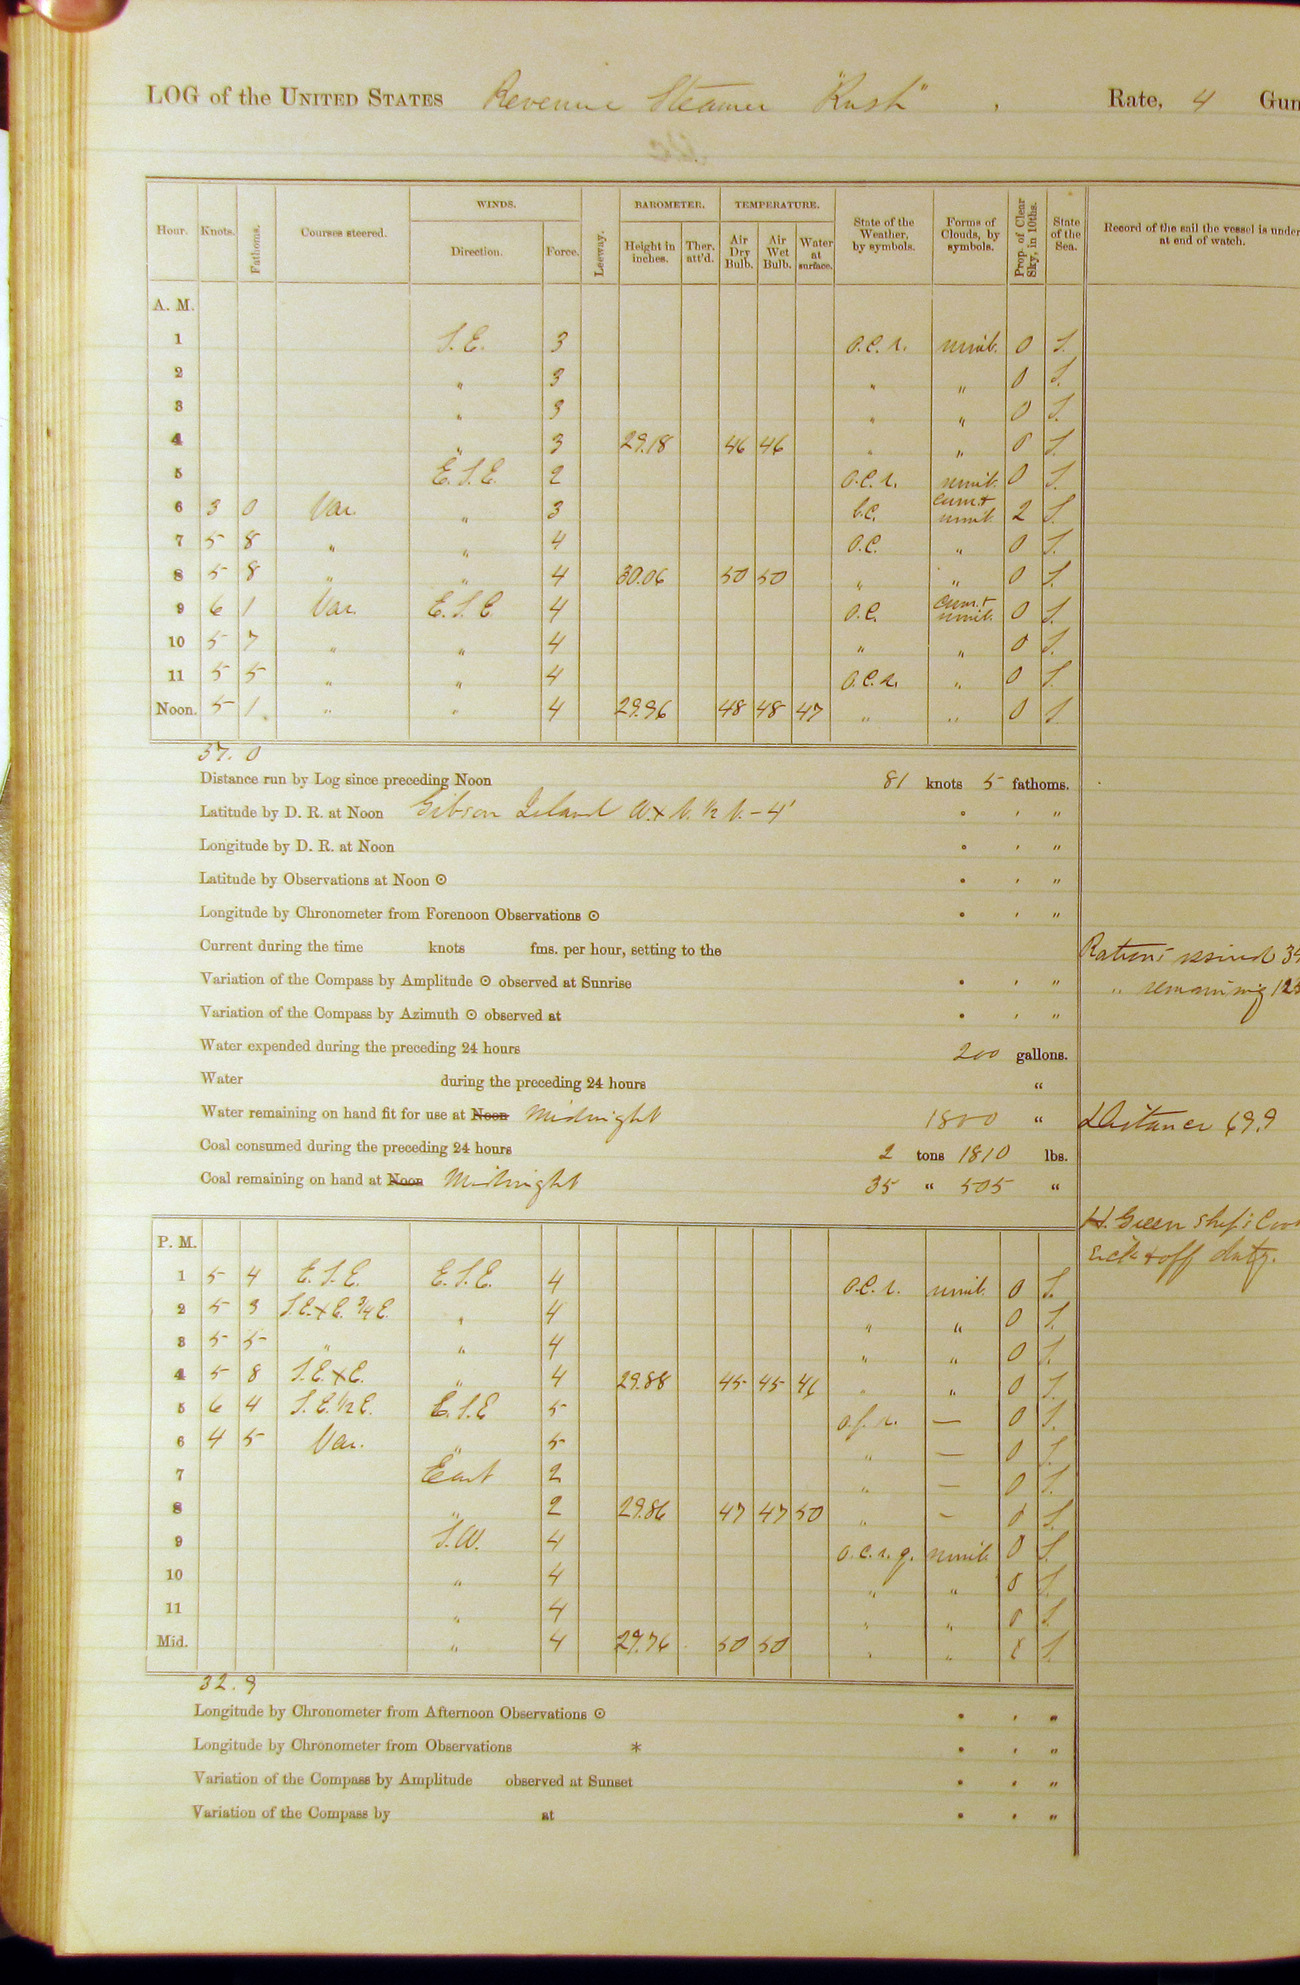 LOG of the UNITED STATES Revenue Steamer "Rush", Rate, 4 Gun
Hour. Knots. Fathoms. Courses steered. WINDS. Direction. Force. Leeway. BAROMETER. Height in inches. Ther. att'd. TEMPERATURE. Air Dry Bulb. Air Wet Bulb. Water at surface. State of the Weather, by symbols. Forms of Clouds, by symbols. Prop. of Clear Sky, in 10ths. State of the Sea. Record of the sail the vessel is under at end of watch.
A. M.
1 S.E. 3 o.c.r. nimb. 0 S.
2 " 3 " " 0 S.
3 " 3 " " 0 S.
4 " 3 29.18 46 46 " " 0 S.
5 E.S.E. 2 o.c.r. nimb. 0 S.
6 3 0 Var. " 3 b.c. cum.+ nimb. 2 S.
7 5 8 " " 4 o.c. " 0 S.
8 5 8 " " 4 30.06 50 50 " " 0 S.
9 6 1 Var. E.S.E. 4 o.c. cum.+ nimb. 0 S.
10 5 7 " " 4 " " 0 S.
11 5 5 " " 4 o.c.r. " 0 S.
Noon. 5 1 " " 4 29.96 48 48 47 " " 0 S.
37. 0
Distance run by Log since preceding Noon 81 knots 5 fathoms.
Latitude by D. R. at Noon Gibson Island W.x N. 1/2 N. - 4' ° ' "
Longitude by D. R. at Noon ° ' "
Latitude by Observations at Noon ⊙ ° ' "
Longitude by Chronometer from Forenoon Observations ⊙ ° ' "
Current during the time knots fms. per hour, setting to the
Rations issued 34
Variation of the Compass by Amplitude ⊙ observed at Sunrise ° ' "
" remaining 125
Variation of the Compass by Azimuth ⊙ observed at ° ' "
Water expended during the preceding 24 hours 200 gallons.
Water during the preceding 24 hours "
Water remaining on hand fit for use at Noon Midnight 1800 "
Distance 69.9
Coal consumed during the preceding 24 hours 2 tons 1810 lbs.
Coal remaining on hand at Noon Midnight 35 " 505 "
H. Green ship's Coo
sick & off duty.
P. M.
1 5 4 E.S.E. E.S.E. 4 o.c.r. nimb. 0 S.
2 5 3 S.E.x E. 3/4 E. " 4 " " 0 S.
3 5 5 " " 4 " " 0 S.
4 5 8 S.E.x E. " 4 29.88 45 45 46 " " 0 S.
5 6 4 S.E. 1/2 E. E.S.E 5 o.f.r. — 0 S.
6 4 5 Var. " 5 " — 0 S.
7 East 2 " — 0 S.
8 " 2 29.86 47 47 50 " — 0 S.
9 S.W. 4 o.c.r.q. nimb. 0 S.
10 " 4 " " 0 S.
11 " 4 " " 0 S.
Mid. " 4 29.76 50 50 " " S.
32. 9
Longitude by Chronometer from Afternoon Observations ⊙ ° ' "
Longitude by Chronometer from Observations * ° ' "
Variation of the Compass by Amplitude observed at Sunset ° ' "
Variation of the Compass by at ° ' "